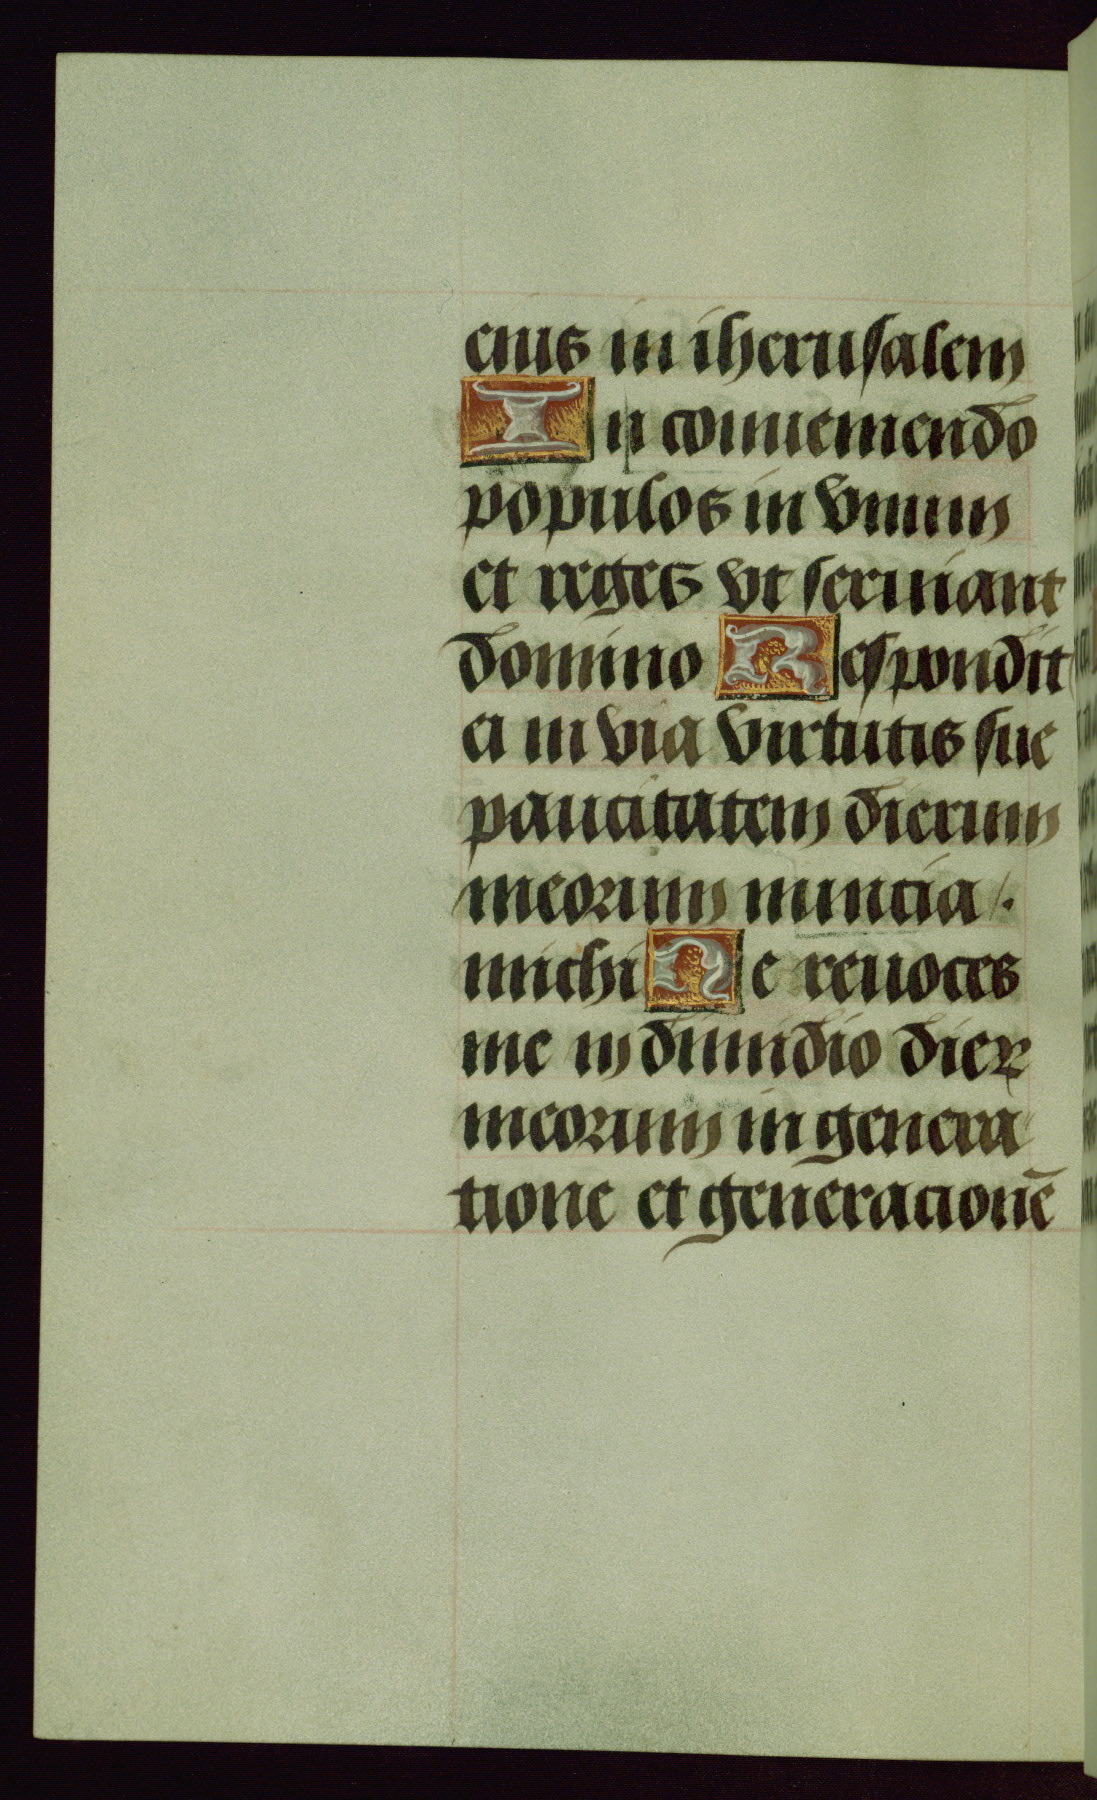 eius in iherusalem
In conueniendo
populos in vnum
et reges vt seruiant
domino Respondit
ei in via virtutis sue
paucitatem dierum
meorum nuncia /.
michi Ne reuoces
me in dimidio dieꝝ
meorum in genera
tione et generacionē